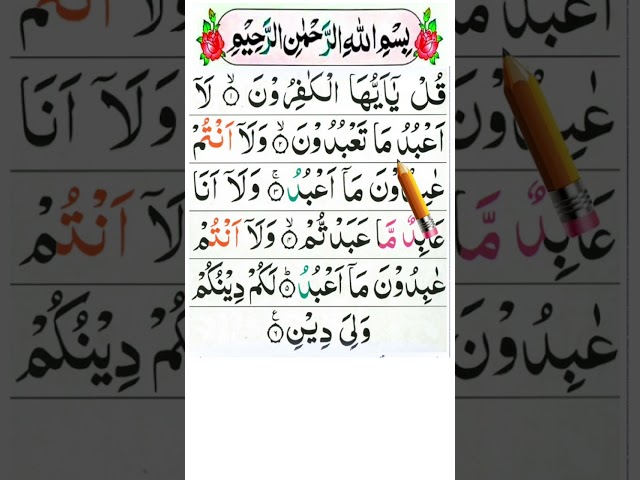 بِسْمِ اللهِ الرَّحْمٰنِ الرَّحِيْمِ
قُلْ يٰٓاَيُّهَا الْكٰفِرُوْنَ ۙ﴿۱﴾ لَآ
اَعْبُدُ مَا تَعْبُدُوْنَ ۙ﴿۲﴾ وَلَآ اَنْتُمْ
عٰبِدُوْنَ مَآ اَعْبُدُ ۚ﴿۳﴾ وَلَآ اَنَا
عَابِدٌ مَّا عَبَدْتُّمْ ۙ﴿۴﴾ وَلَآ اَنْتُمْ
عٰبِدُوْنَ مَآ اَعْبُدُ ؕ﴿۵﴾ لَكُمْ دِيْنُكُمْ
وَلِيَ دِيْنِ ﴿۶﴾ع